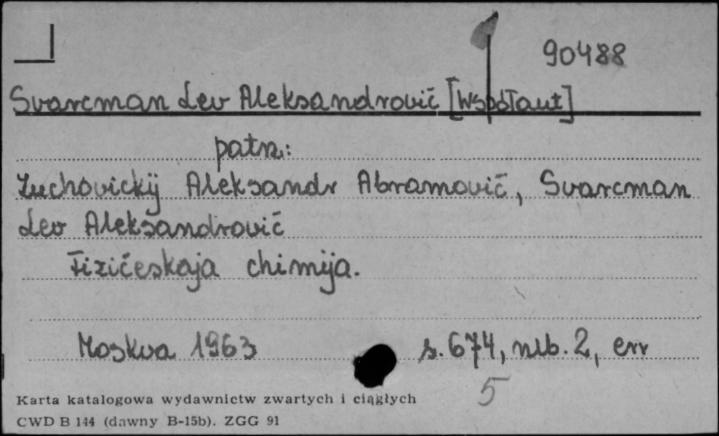 90488
Svarcman Lev Aleksandrovič [współaut]
patrz:
Žuchovickij Aleksandr Abramovič, Svarcman
Lev Aleksandrovič
Fizičeskaja chimija.
Moskva 1963 s. 674, nlb. 2, err
5
Karta katalogowa wydawnictw zwartych i ciągłych
CWD B 144 (dawny B-15b). ZGG 91